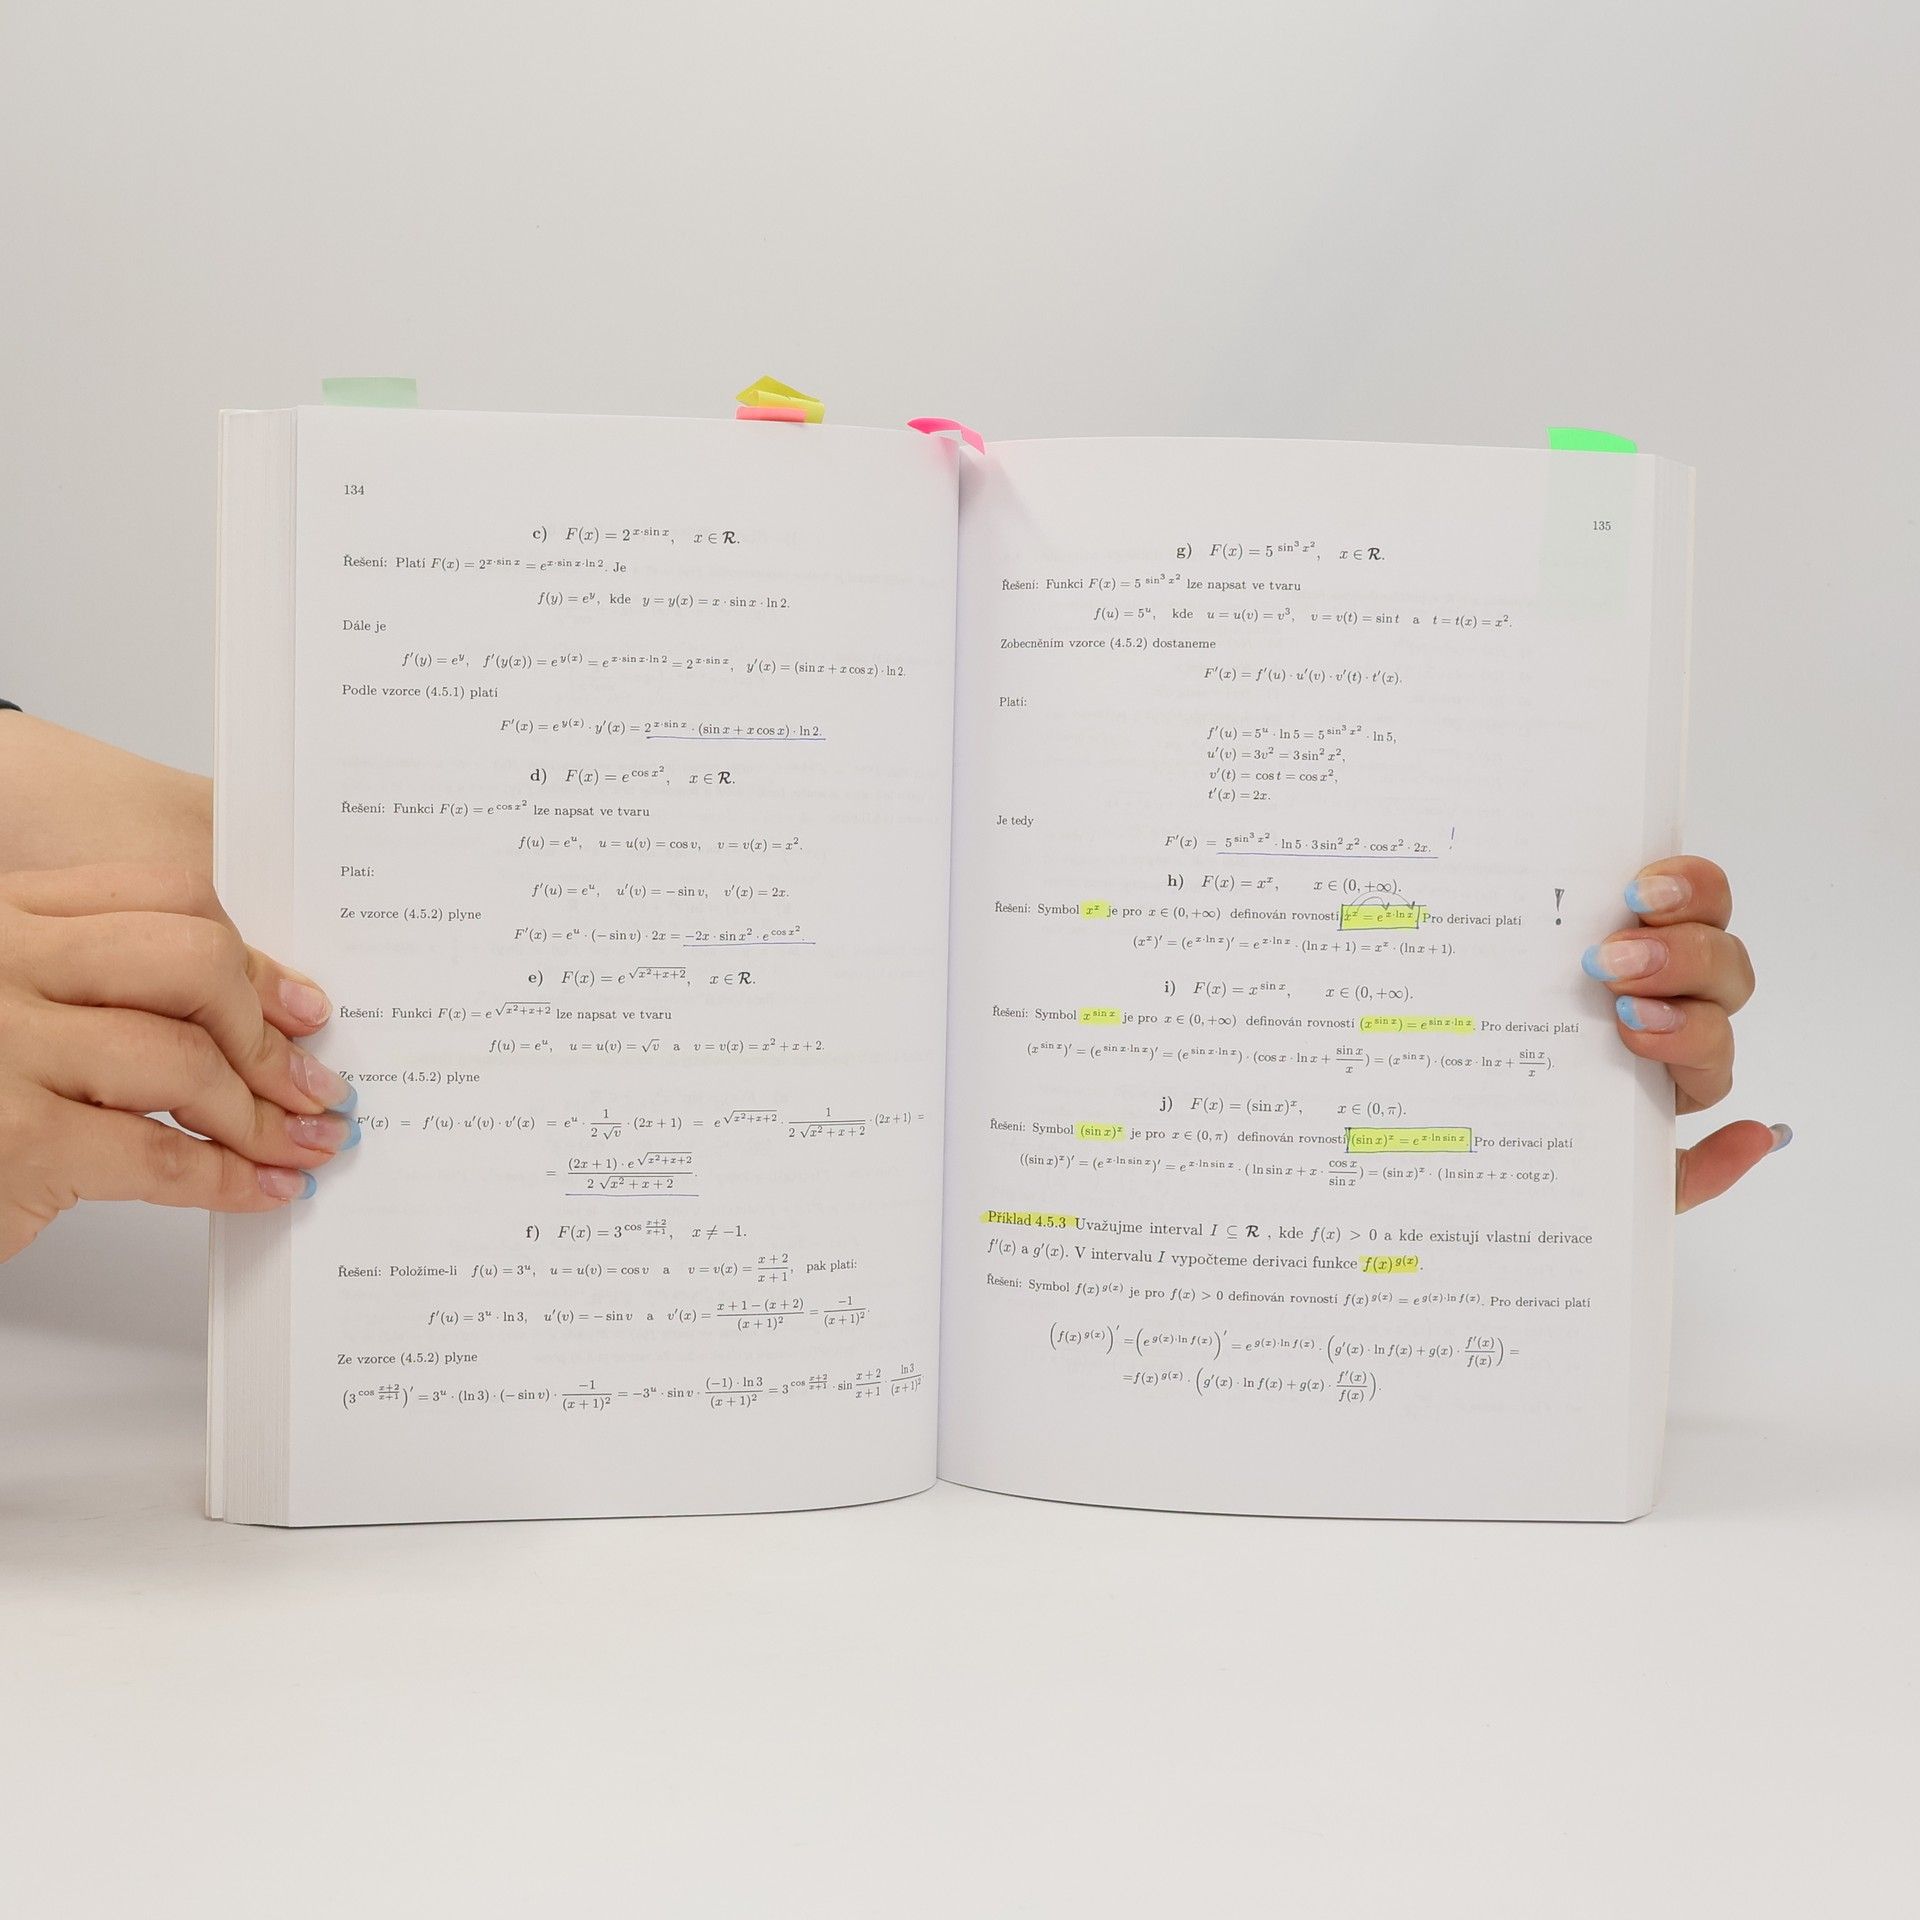 134
c) F(x) = 2^{x·sin x}, x ∈ R.
Řešení: Platí F(x) = 2^{x·sin x} = e^{x·sin x·ln 2}. Je
f(y) = e^y, kde y = y(x) = x · sin x · ln 2.
Dále je
f′(y) = e^y, f′(y(x)) = e^{y(x)} = e^{x·sin x·ln 2} = 2^{x·sin x}, y′(x) = (sin x + x cos x) · ln 2.
Podle vzorce (4.5.1) platí
F′(x) = e^{y(x)} · y′(x) = 2^{x·sin x} · (sin x + x cos x) · ln 2.
d) F(x) = e^{cos x²}, x ∈ R.
Řešení: Funkci F(x) = e^{cos x²} lze napsat ve tvaru
f(u) = e^u, u = u(v) = cos v, v = v(x) = x².
Platí:
f′(u) = e^u, u′(v) = − sin v, v′(x) = 2x.
Ze vzorce (4.5.2) plyne
F′(x) = e^u · (− sin v) · 2x = −2x · sin x² · e^{cos x²}.
e) F(x) = e^{√(x²+x+2)}, x ∈ R.
Řešení: Funkci F(x) = e^{√(x²+x+2)} lze napsat ve tvaru
f(u) = e^u, u = u(v) = √v a v = v(x) = x² + x + 2.
Ze vzorce (4.5.2) plyne
F′(x) = f′(u) · u′(v) · v′(x) = e^u · 1/(2√v) · (2x + 1) = e^{√(x²+x+2)} · 1/(2√(x² + x + 2)) · (2x + 1) =
= ((2x + 1) · e^{√(x²+x+2)})/(2√(x² + x + 2)).
f) F(x) = 3^{cos (x+2)/(x+1)}, x ≠ −1.
Řešení: Položíme-li f(u) = 3^u, u = u(v) = cos v a v = v(x) = (x + 2)/(x + 1), pak platí:
f′(u) = 3^u · ln 3, u′(v) = − sin v a v′(x) = (x + 1 − (x + 2))/(x + 1)² = −1/(x + 1)².
Ze vzorce (4.5.2) plyne
(3^{cos (x+2)/(x+1)})′ = 3^u · (ln 3) · (− sin v) · −1/(x + 1)² = −3^u · sin v · ((−1) · ln 3)/(x + 1)² = 3^{cos (x+2)/(x+1)} · sin (x + 2)/(x + 1) · ln 3/(x + 1)².
135
g) F(x) = 5^{sin³ x²}, x ∈ R.
Řešení: Funkci F(x) = 5^{sin³ x²} lze napsat ve tvaru
f(u) = 5^u, kde u = u(v) = v³, v = v(t) = sin t a t = t(x) = x².
Zobecněním vzorce (4.5.2) dostaneme
F′(x) = f′(u) · u′(v) · v′(t) · t′(x).
Platí:
f′(u) = 5^u · ln 5 = 5^{sin³ x²} · ln 5,
u′(v) = 3v² = 3 sin² x²,
v′(t) = cos t = cos x²,
t′(x) = 2x.
Je tedy
F′(x) = 5^{sin³ x²} · ln 5 · 3 sin² x² · cos x² · 2x. !
h) F(x) = x^x, x ∈ (0, +∞).
Řešení: Symbol x^x je pro x ∈ (0, +∞) definován rovností x^x = e^{x·ln x}. Pro derivaci platí !
(x^x)′ = (e^{x·ln x})′ = e^{x·ln x} · (ln x + 1) = x^x · (ln x + 1).
i) F(x) = x^{sin x}, x ∈ (0, +∞).
Řešení: Symbol x^{sin x} je pro x ∈ (0, +∞) definován rovností (x^{sin x}) = e^{sin x·ln x}. Pro derivaci platí
(x^{sin x})′ = (e^{sin x·ln x})′ = (e^{sin x·ln x}) · (cos x · ln x + sin x/x) = (x^{sin x}) · (cos x · ln x + sin x/x).
j) F(x) = (sin x)^x, x ∈ (0, π).
Řešení: Symbol (sin x)^x je pro x ∈ (0, π) definován rovností (sin x)^x = e^{x·ln sin x}. Pro derivaci platí
((sin x)^x)′ = (e^{x·ln sin x})′ = e^{x·ln sin x} · ( ln sin x + x · cos x/sin x) = (sin x)^x · ( ln sin x + x · cotg x).
Příklad 4.5.3 Uvažujme interval I ⊆ R , kde f(x) > 0 a kde existují vlastní derivace
f′(x) a g′(x). V intervalu I vypočteme derivaci funkce f(x)^{g(x)}.
Řešení: Symbol f(x)^{g(x)} je pro f(x) > 0 definován rovností f(x)^{g(x)} = e^{g(x)·ln f(x)}. Pro derivaci platí
(f(x)^{g(x)})′ = (e^{g(x)·ln f(x)})′ = e^{g(x)·ln f(x)} · (g′(x) · ln f(x) + g(x) · f′(x)/f(x)) =
= f(x)^{g(x)} · (g′(x) · ln f(x) + g(x) · f′(x)/f(x)).